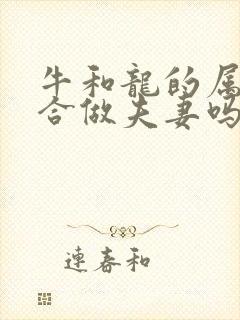 牛和龍的属
合做夫妻吗
連春和